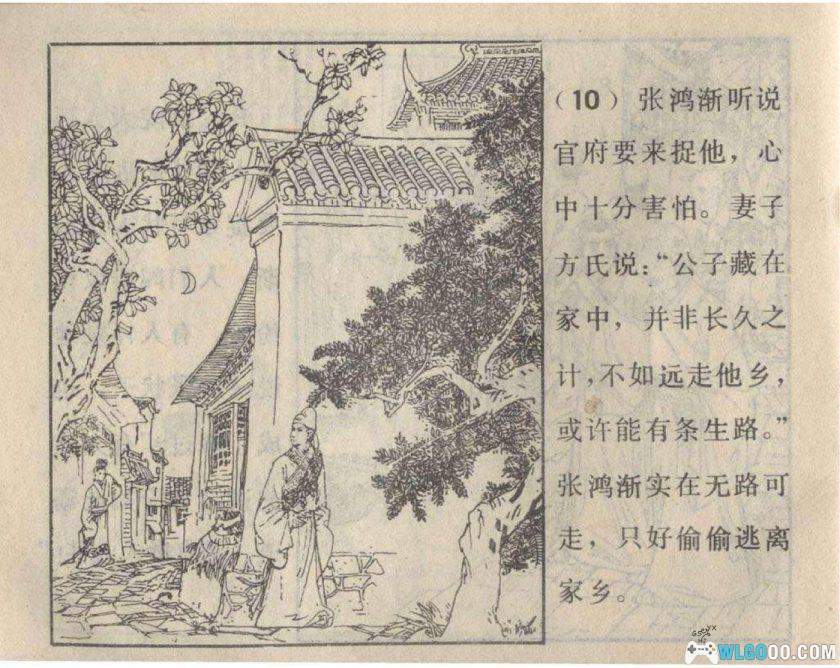 （10）张鸿渐听说
官府要来捉他，心
中十分害怕。妻子
方氏说：“公子藏在
家中，并非长久之
计，不如远走他乡，
或许能有条生路。”
张鸿渐实在无路可
走，只好偷偷逃离
家乡。
WLGOOO.COM